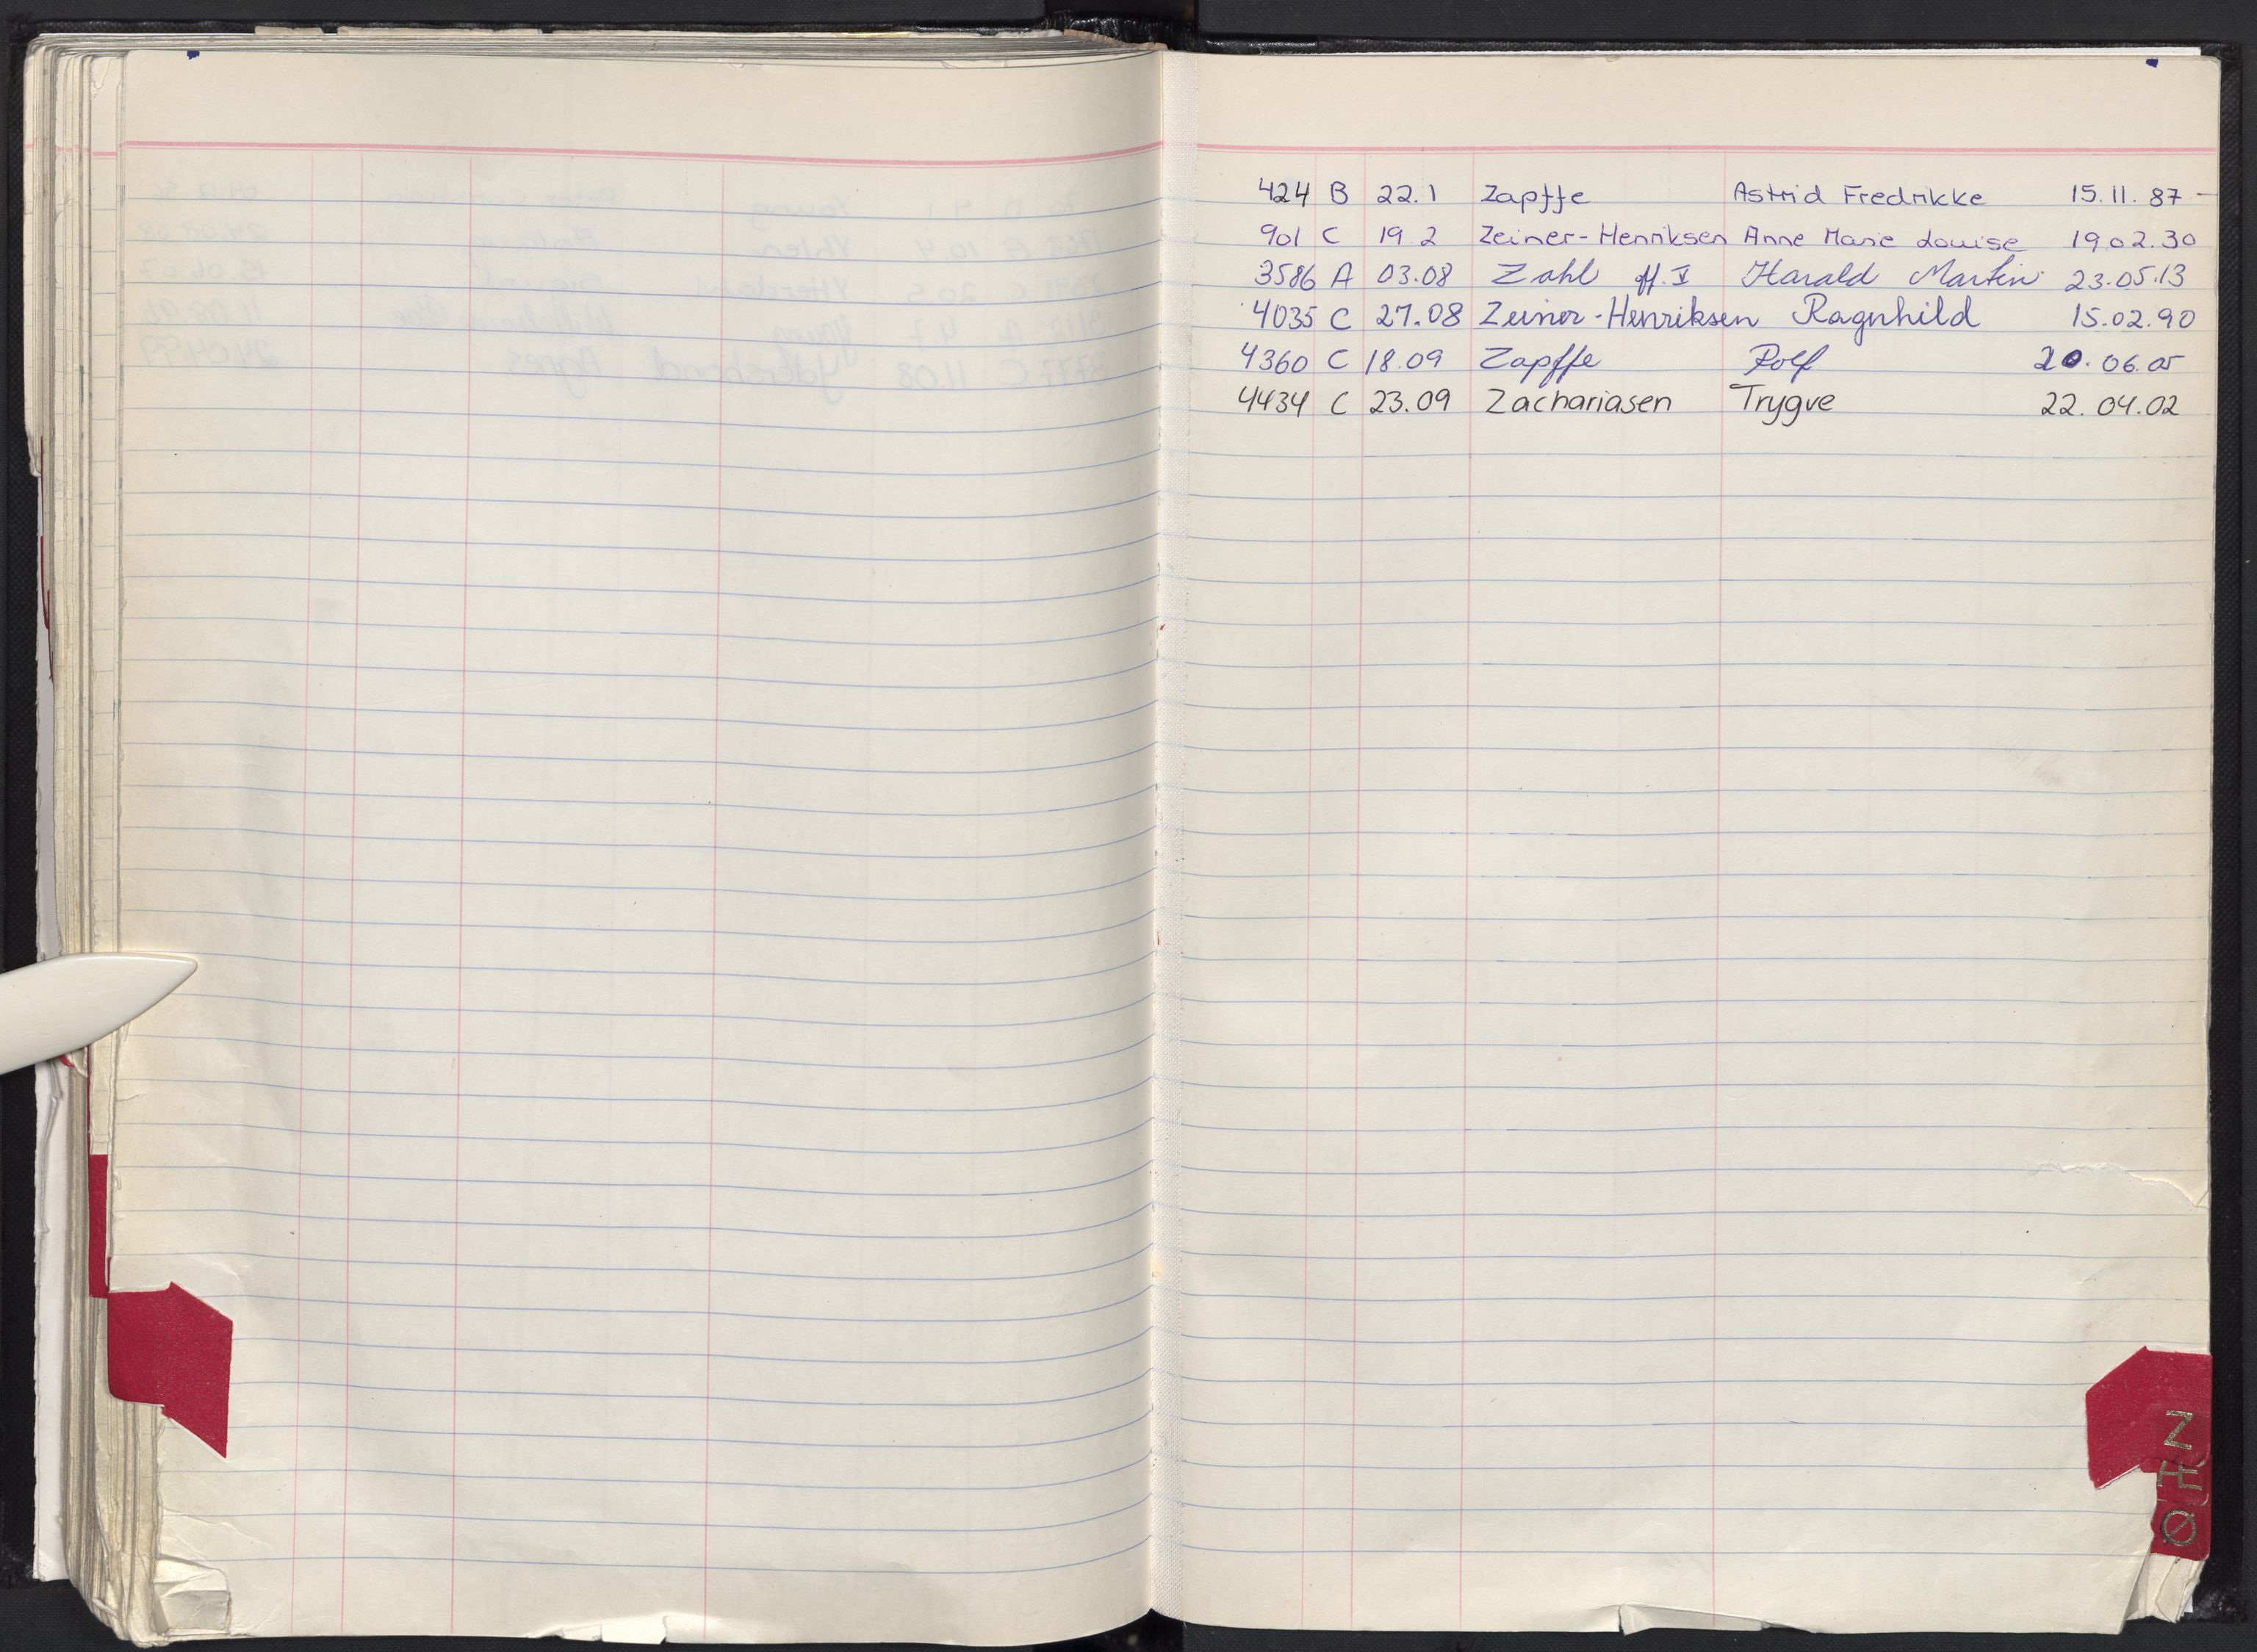 424 B 22.1 Zapffe Astrid Fredrikke 15.11.87 -
901 C 19.2 Zeiner-Henriksen Anne Marie Louise 19.02.30
3586 A 03.08 Zahl Harald Martin 23.05.13
4035 C 27.08 Zeiner-Henriksen Ragnhild 15.02.90
4360 C 18.09 Zapffe Rolf 20.06.05
4434 C 23.09 Zachariasen Trygve 22.04.02
Z
Æ
Ø